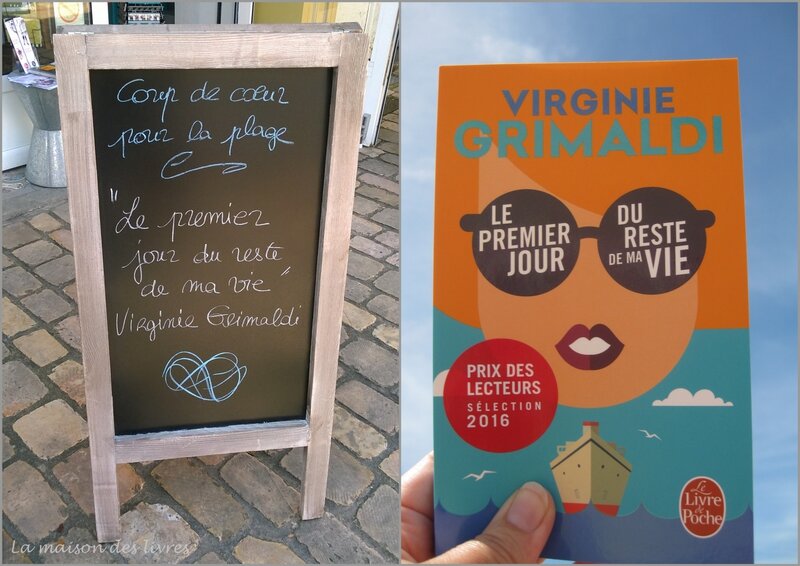 Coup de cœur
pour la plage
"Le premier
jour du reste
de ma vie"
Virginie Grimaldi
La maison des livres
VIRGINIE
GRIMALDI
LE
PREMIER
JOUR
DU
RESTE
DE MA VIE
PRIX DES
LECTEURS
SÉLECTION
2016
Le
Livre
de
Poche